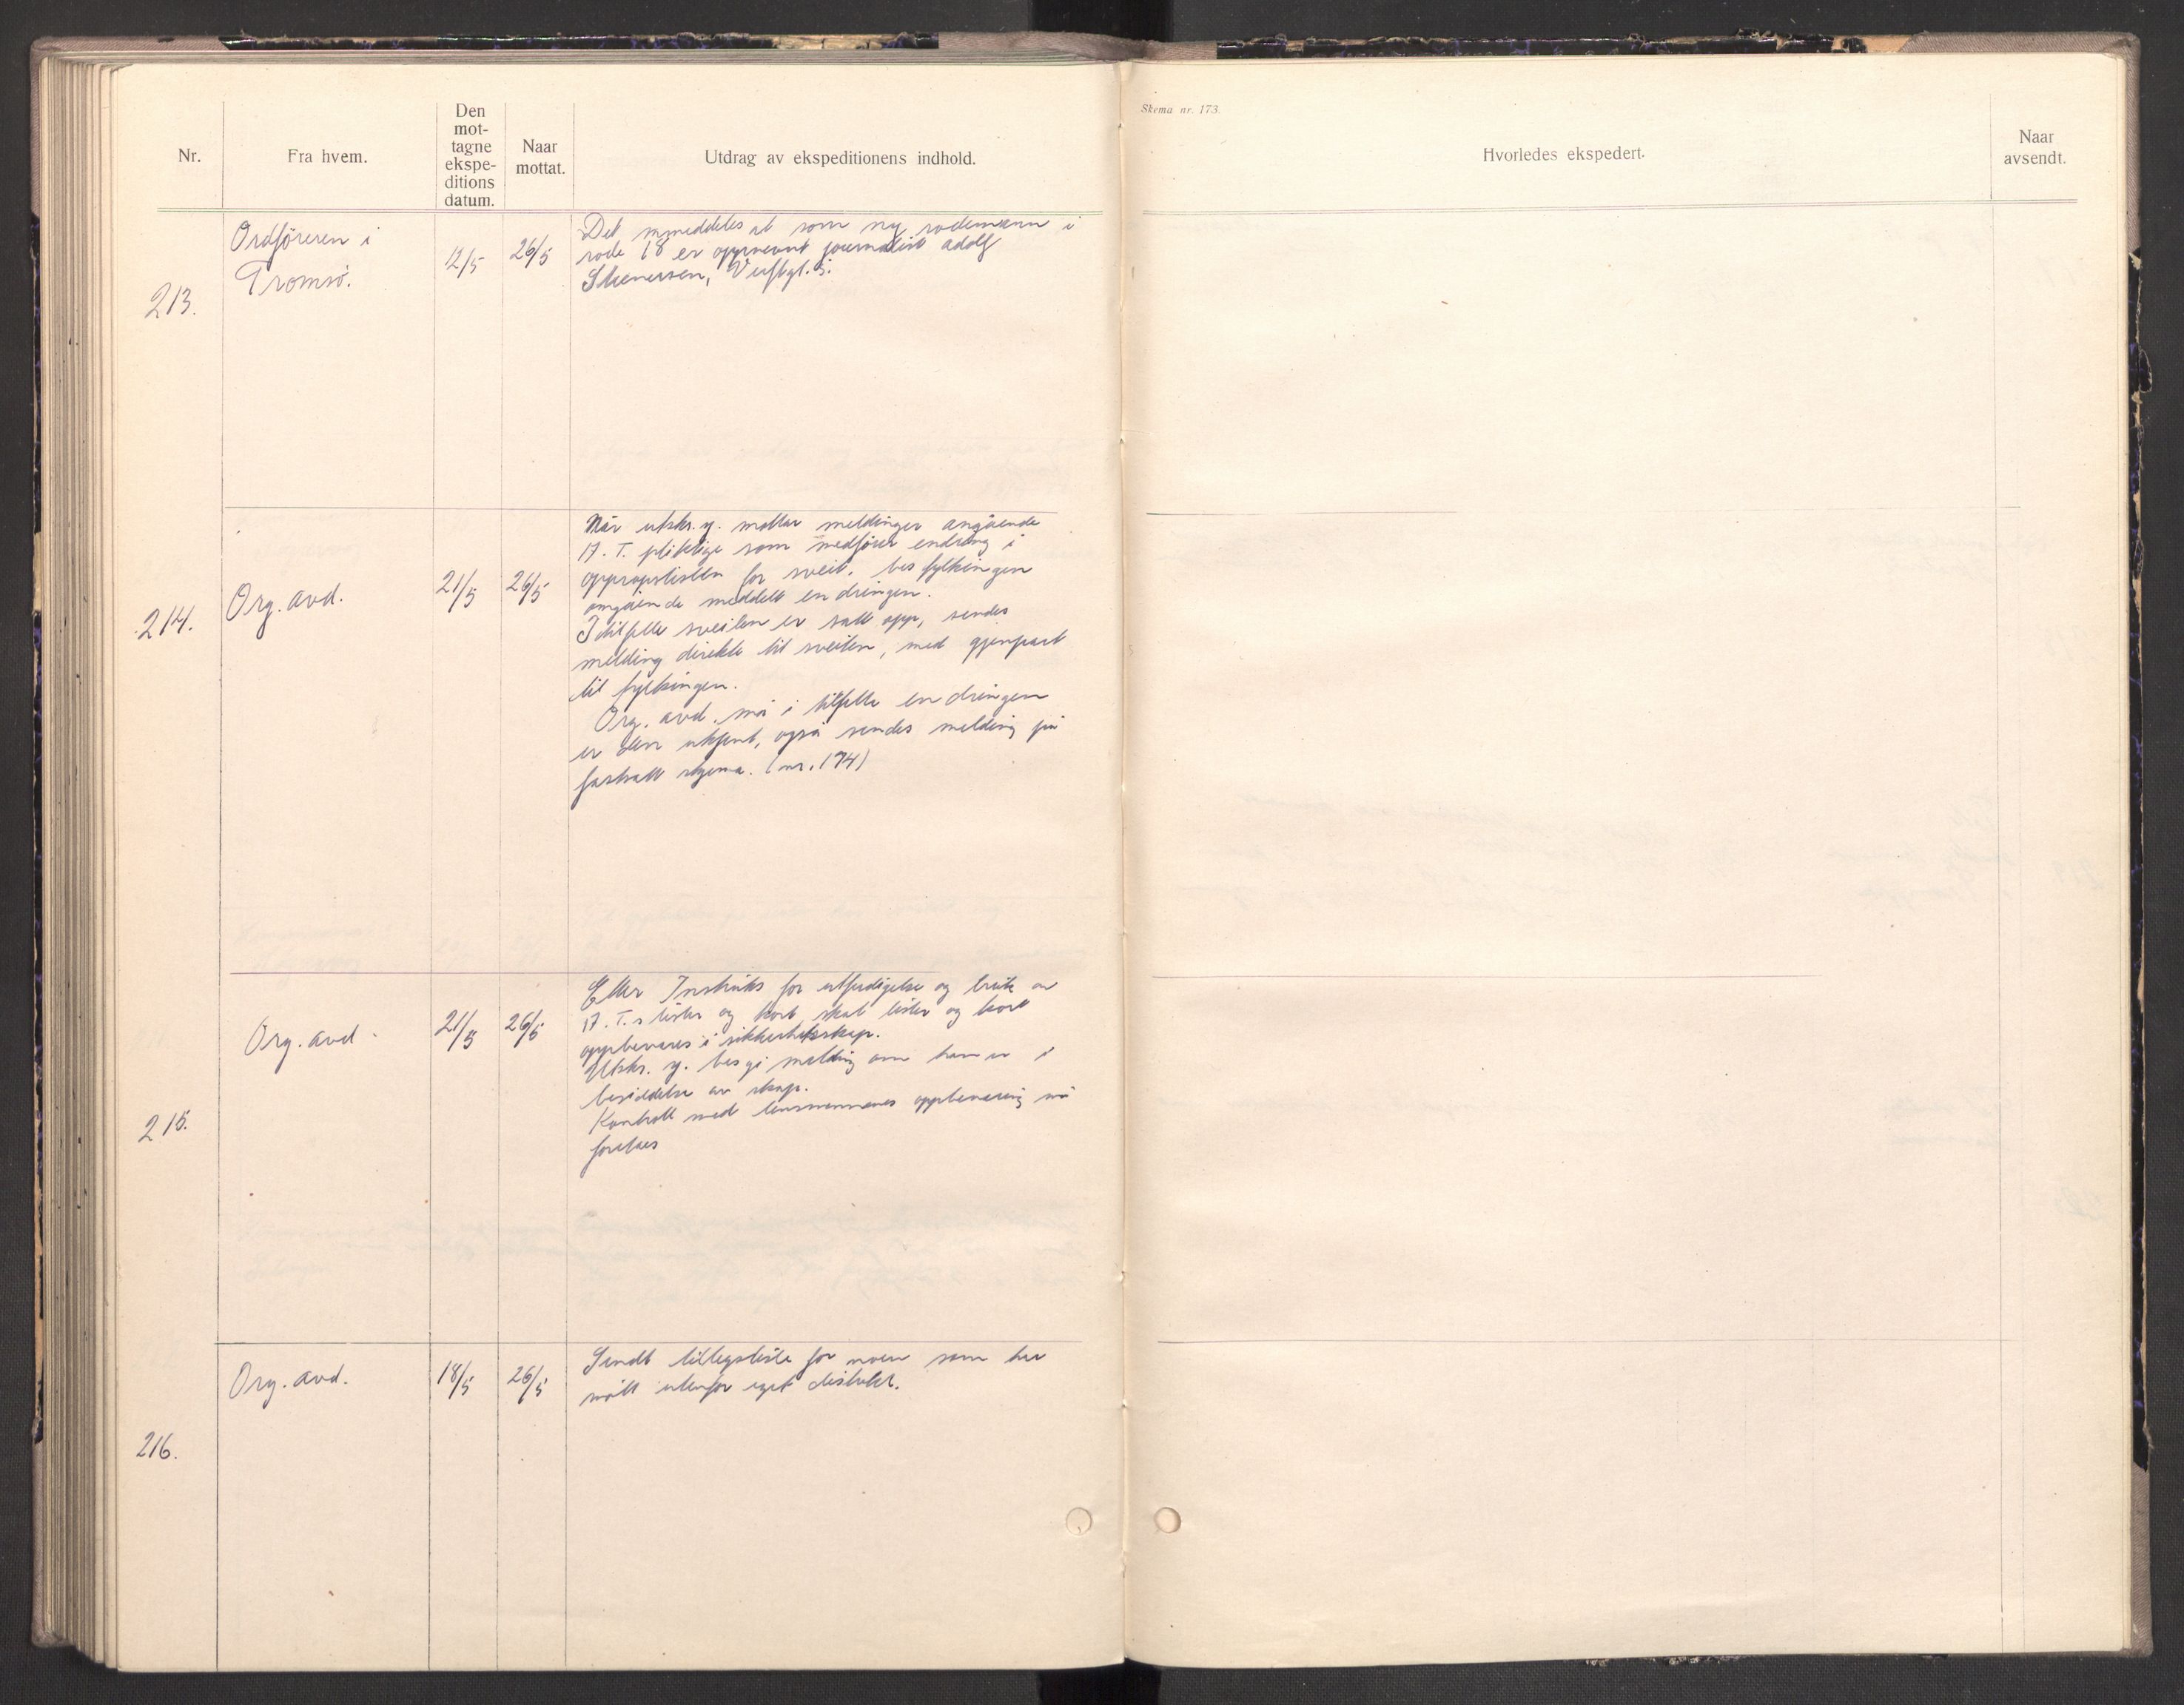 Nr.
Fra hvem.
Den
mot-
tagne
ekspe-
ditions
datum.
Naar
mottat.
Utdrag av ekspeditionens indhold.
Skema nr. 173.
Hvorledes ekspedert.
Naar
avsendt.
213.
Ordføreren i
Tromsø.
12/5
26/5
Det meddeles at som ny rodemann i
rode 18 er oppnevnt journalist Adolf
214.
Org. avd.
21/5
26/5
Når utskr. y. mottar meldinger angående
17. T. pliktige som medfører endring i
oppropslisten for sveit. bes fylkingen
omgående meddelt endringen.
I tilfelle sveiten er satt opp, sendes
melding direkte til sveiten, med gjenpart
til fylkingen.
Org. avd. må i tilfelle endringen
er blir ukjent, også sendes melding på
fastsatt skjema. (nr. 174)
215.
Org. avd.
21/5
26/5
Etter Instruks for utferdigelse og bruk av
17. T.s lister og kort skal lister og kort
oppbevares i sikkerhetsskap.
Utskr. y. bes gi melding om han er i
besiddelse av skap.
Kontroll med lensmennenes oppbevaring må
foretaes
216.
Org. avd.
18/5
26/5
Sendt tilleggsliste for noen som har
møtt utenfor eget distrikt.